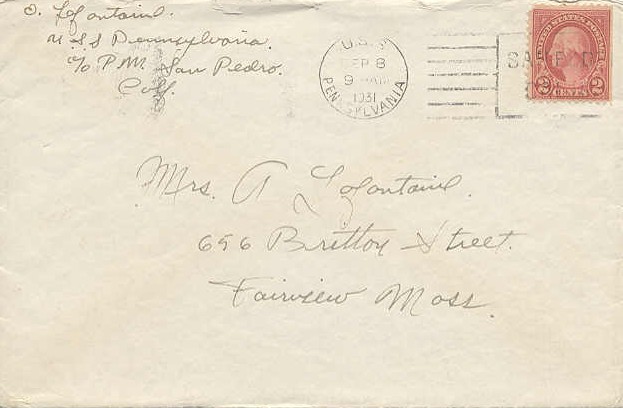 O. Lafontaine.
U S S Pennsylvania.
c/o P.M. San Pedro.
Cal.
U.S.S.
SEP 8
9 AM
1931
PENNSYLVANIA
SAN PEDRO
UNITED STATES POSTAGE
2 CENTS 2
Mrs. A Lafontaine.
656 Britton Street.
Fairview Mass.